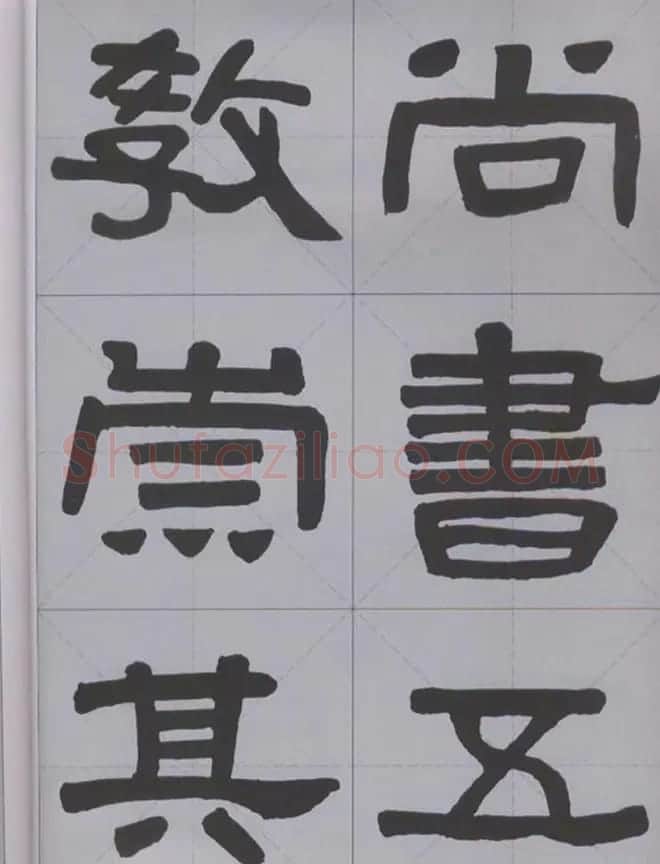 尚書五
教崇其
Shufaziliao.COM